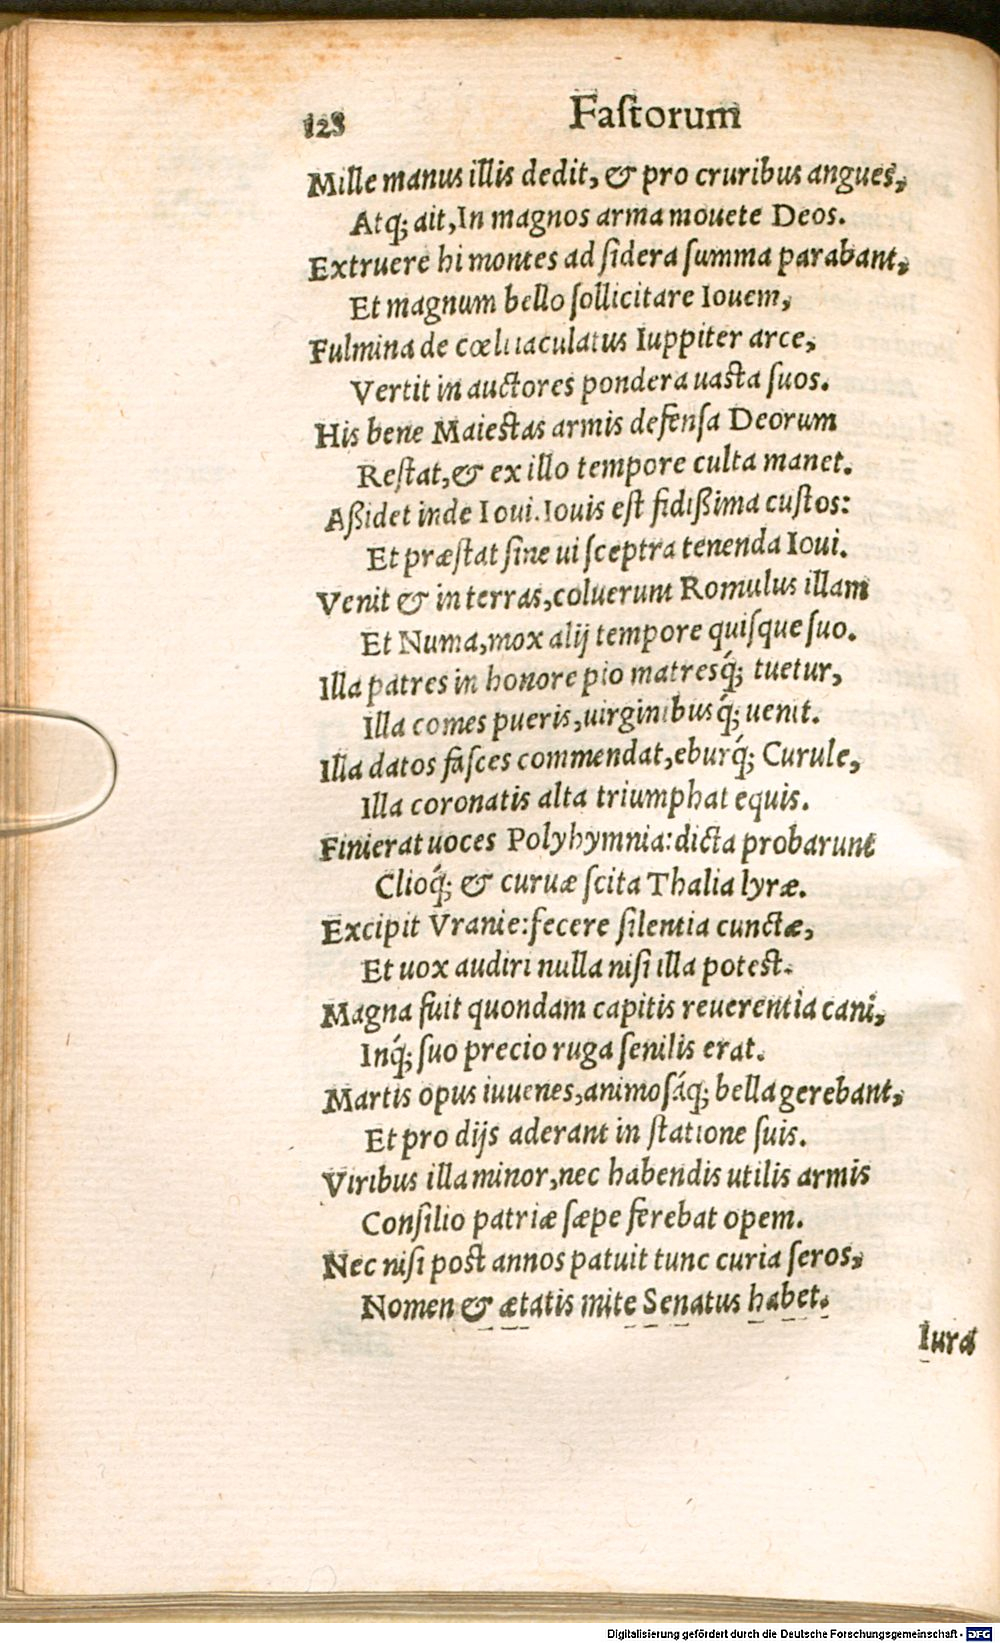 128 Faſtorum
Mille manus illis dedit, & pro cruribus angues,
Atq; ait, In magnos arma mouete Deos.
Extruere hi montes ad ſidera ſumma parabant,
Et magnum bello ſollicitare Iouem,
Fulmina de cœli iaculatus Iuppiter arce,
Vertit in auctores pondera uasta ſuos.
His bene Maiestas armis defenſa Deorum
Reſtat, & ex illo tempore culta manet.
Aßidet inde Ioui. Iouis eſt fidißima cuſtos:
Et præſtat ſine ui ſceptra tenenda Ioui.
Venit & in terras, coluerunt Romulus illam
Et Numa, mox alij tempore quiſque ſuo.
Illa patres in honore pio matresq́; tuetur,
Illa comes pueris, uirginibusq́; uenit.
Illa datos faſces commendat, eburq́; Curule,
Illa coronatis alta triumphat equis.
Finierat uoces Polyhymnia: dicta probarunt
Clioq́; & curuæ ſcita Thalia lyræ.
Excipit Vranie: fecere ſilentia cunctæ,
Et uox audiri nulla niſi illa potest.
Magna fuit quondam capitis reuerentia cani,
Inq́; ſuo precio ruga ſenilis erat.
Martis opus iuuenes, animoſáq; bella gerebant,
Et pro dijs aderant in ſtatione ſuis.
Viribus illa minor, nec habendis utilis armis
Conſilio patriæ ſæpe ferebat opem.
Nec niſi post annos patuit tunc curia ſeros,
Nomen & ætatis mite Senatus habet.
Iura
Digitalisierung gefördert durch die Deutsche Forschungsgemeinschaft - DFG